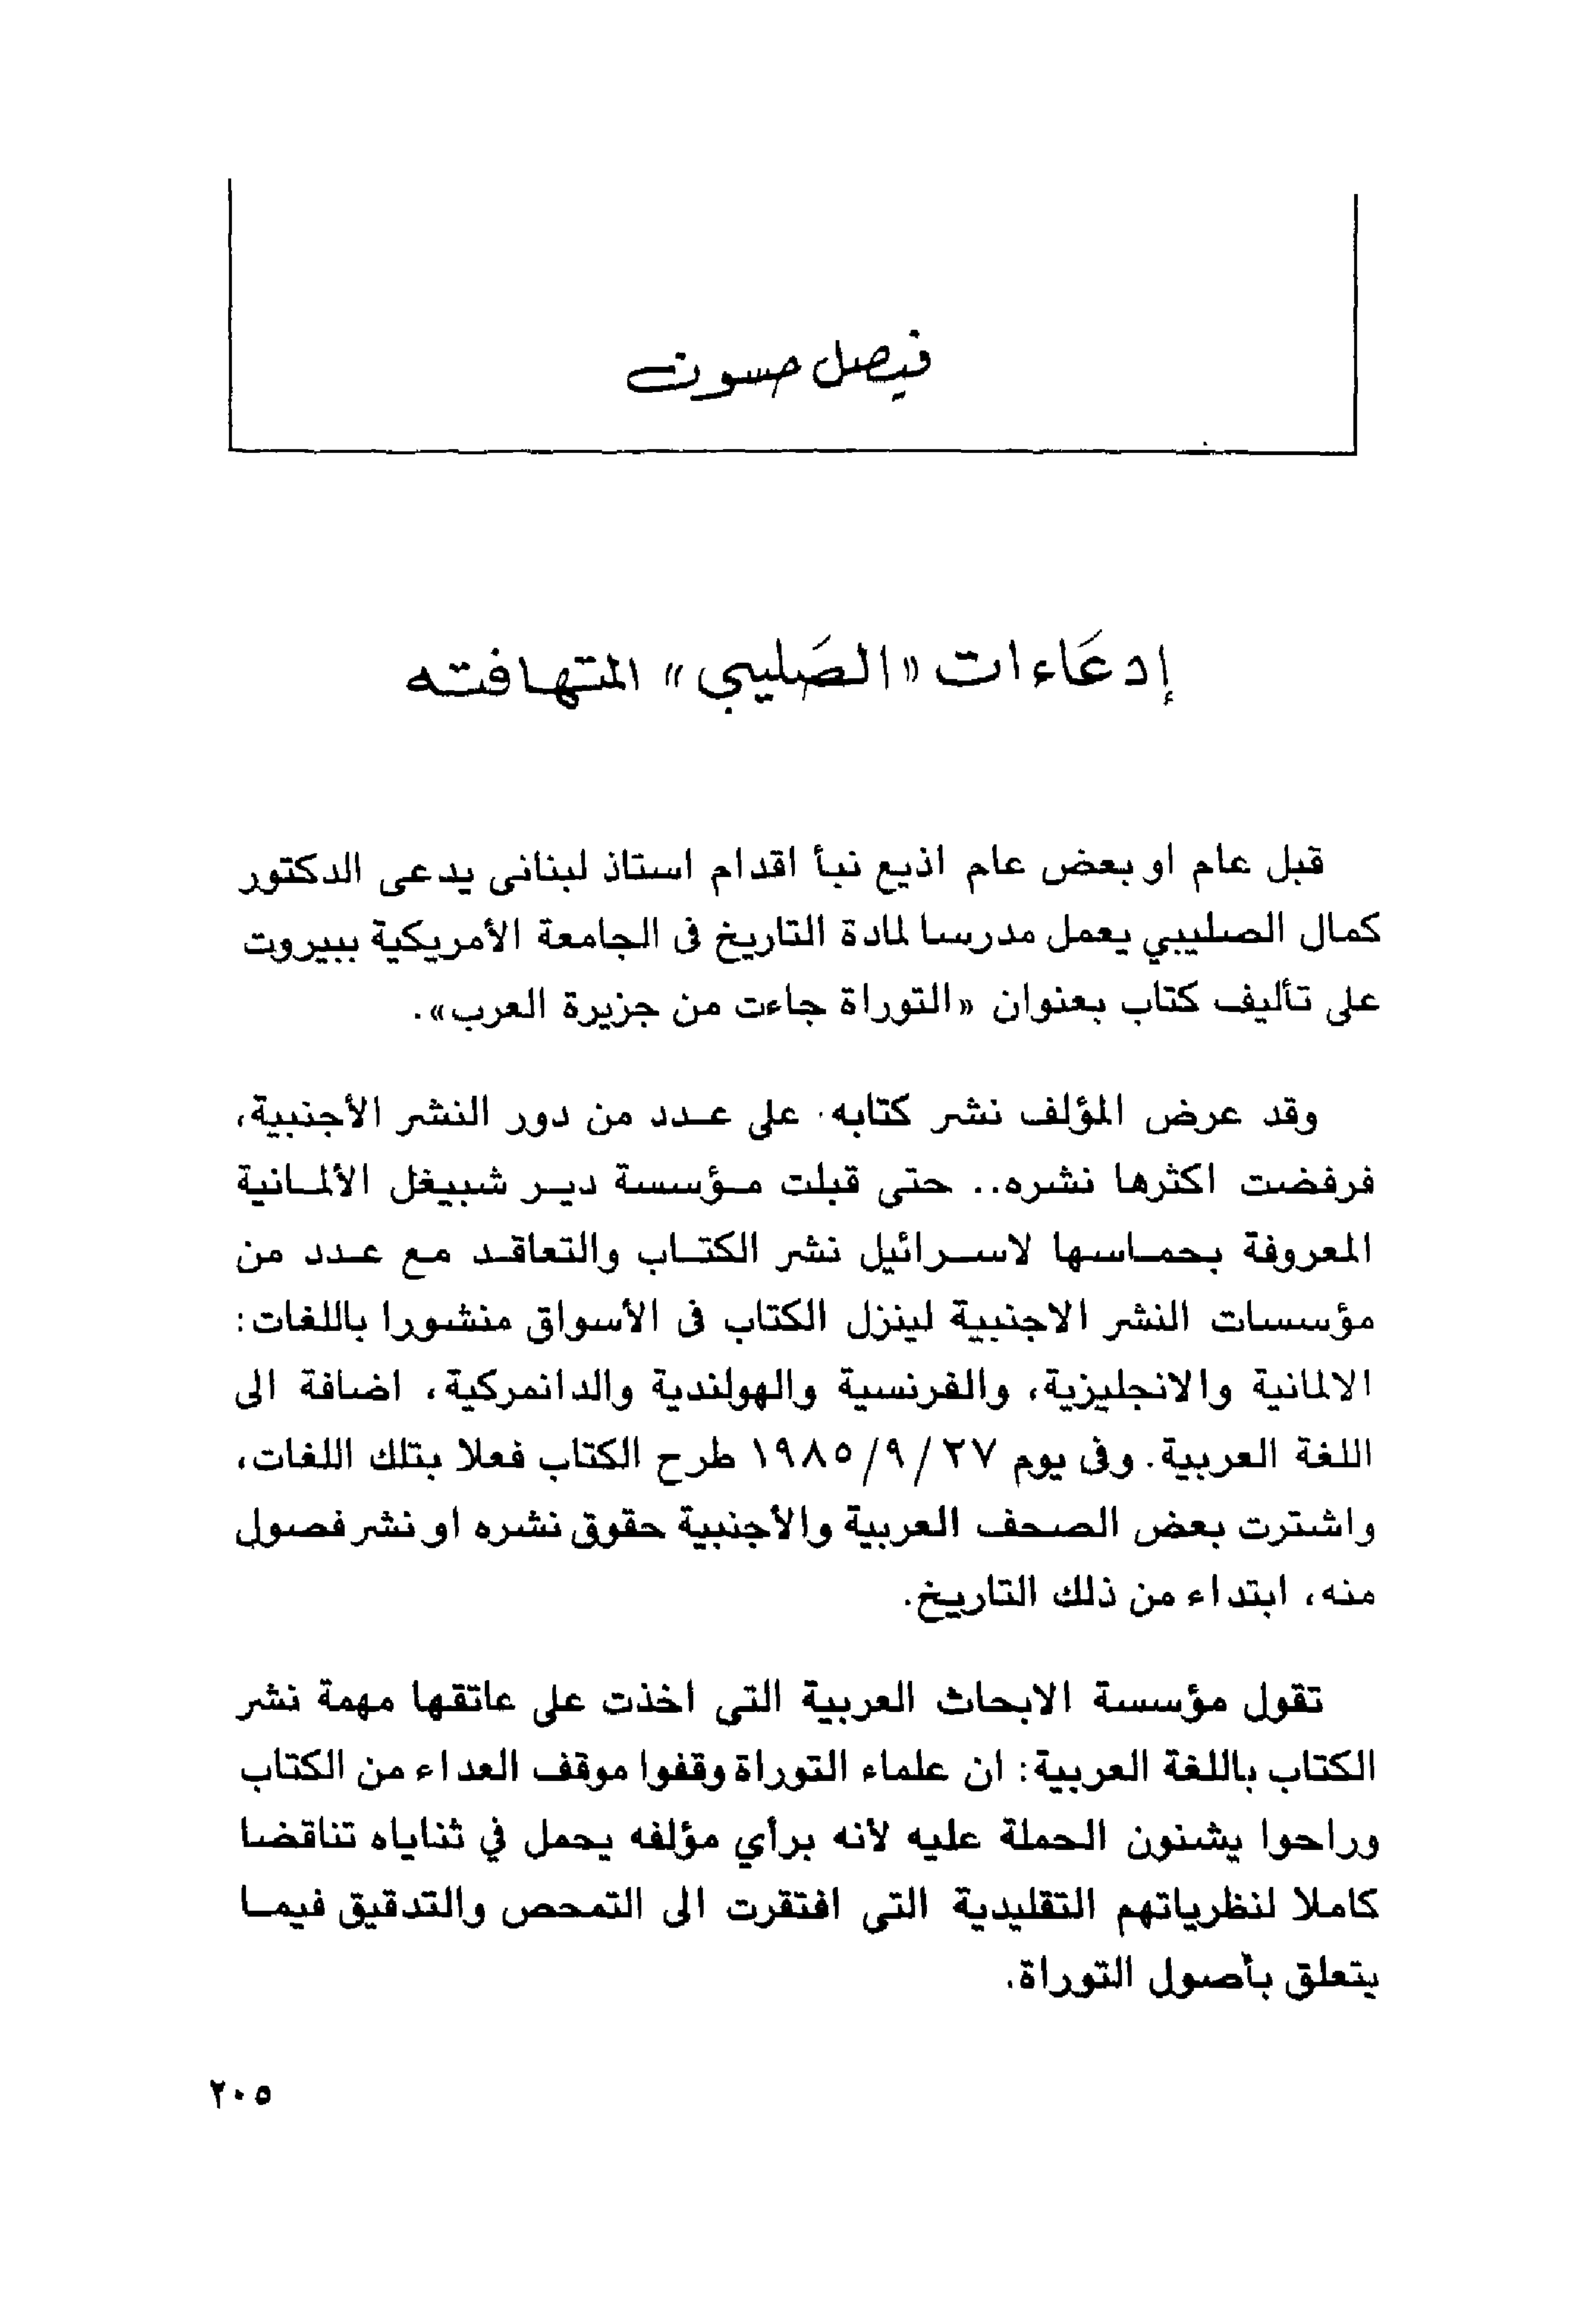 فيصل حسون
إدعَاءات «الصَليبي» المتهافته
قبل عام او بعض عام اذيع نبأ اقدام استاذ لبنانى يدعى الدكتور
كمال الصليبي يعمل مدرسا لمادة التاريخ فى الجامعة الأمريكية ببيروت
على تأليف كتاب بعنوان «التوراة جاءت من جزيرة العرب».
وقد عرض المؤلف نشر كتابه على عدد من دور النشر الأجنبية،
فرفضت اكثرها نشره.. حتى قبلت مؤسسة دير شبيغل الألمانية
المعروفة بحماسها لاسرائيل نشر الكتاب والتعاقد مع عدد من
مؤسسات النشر الاجنبية لينزل الكتاب فى الأسواق منشورا باللغات:
الالمانية والانجليزية، والفرنسية والهولندية والدانمركية، اضافة الى
اللغة العربية. وفى يوم ٢٧/ ٩/ ١٩٨٥ طرح الكتاب فعلا بتلك اللغات،
واشترت بعض الصحف العربية والأجنبية حقوق نشره او نشر فصول
منه، ابتداء من ذلك التاريخ.
تقول مؤسسة الابحاث العربية التى اخذت على عاتقها مهمة نشر
الكتاب باللغة العربية: ان علماء التوراة وقفوا موقف العداء من الكتاب
وراحوا يشنون الحملة عليه لأنه برأي مؤلفه يحمل في ثناياه تناقضا
كاملا لنظرياتهم التقليدية التى افتقرت الى التمحص والتدقيق فيما
يتعلق بأصول التوراة.
٢٠٥